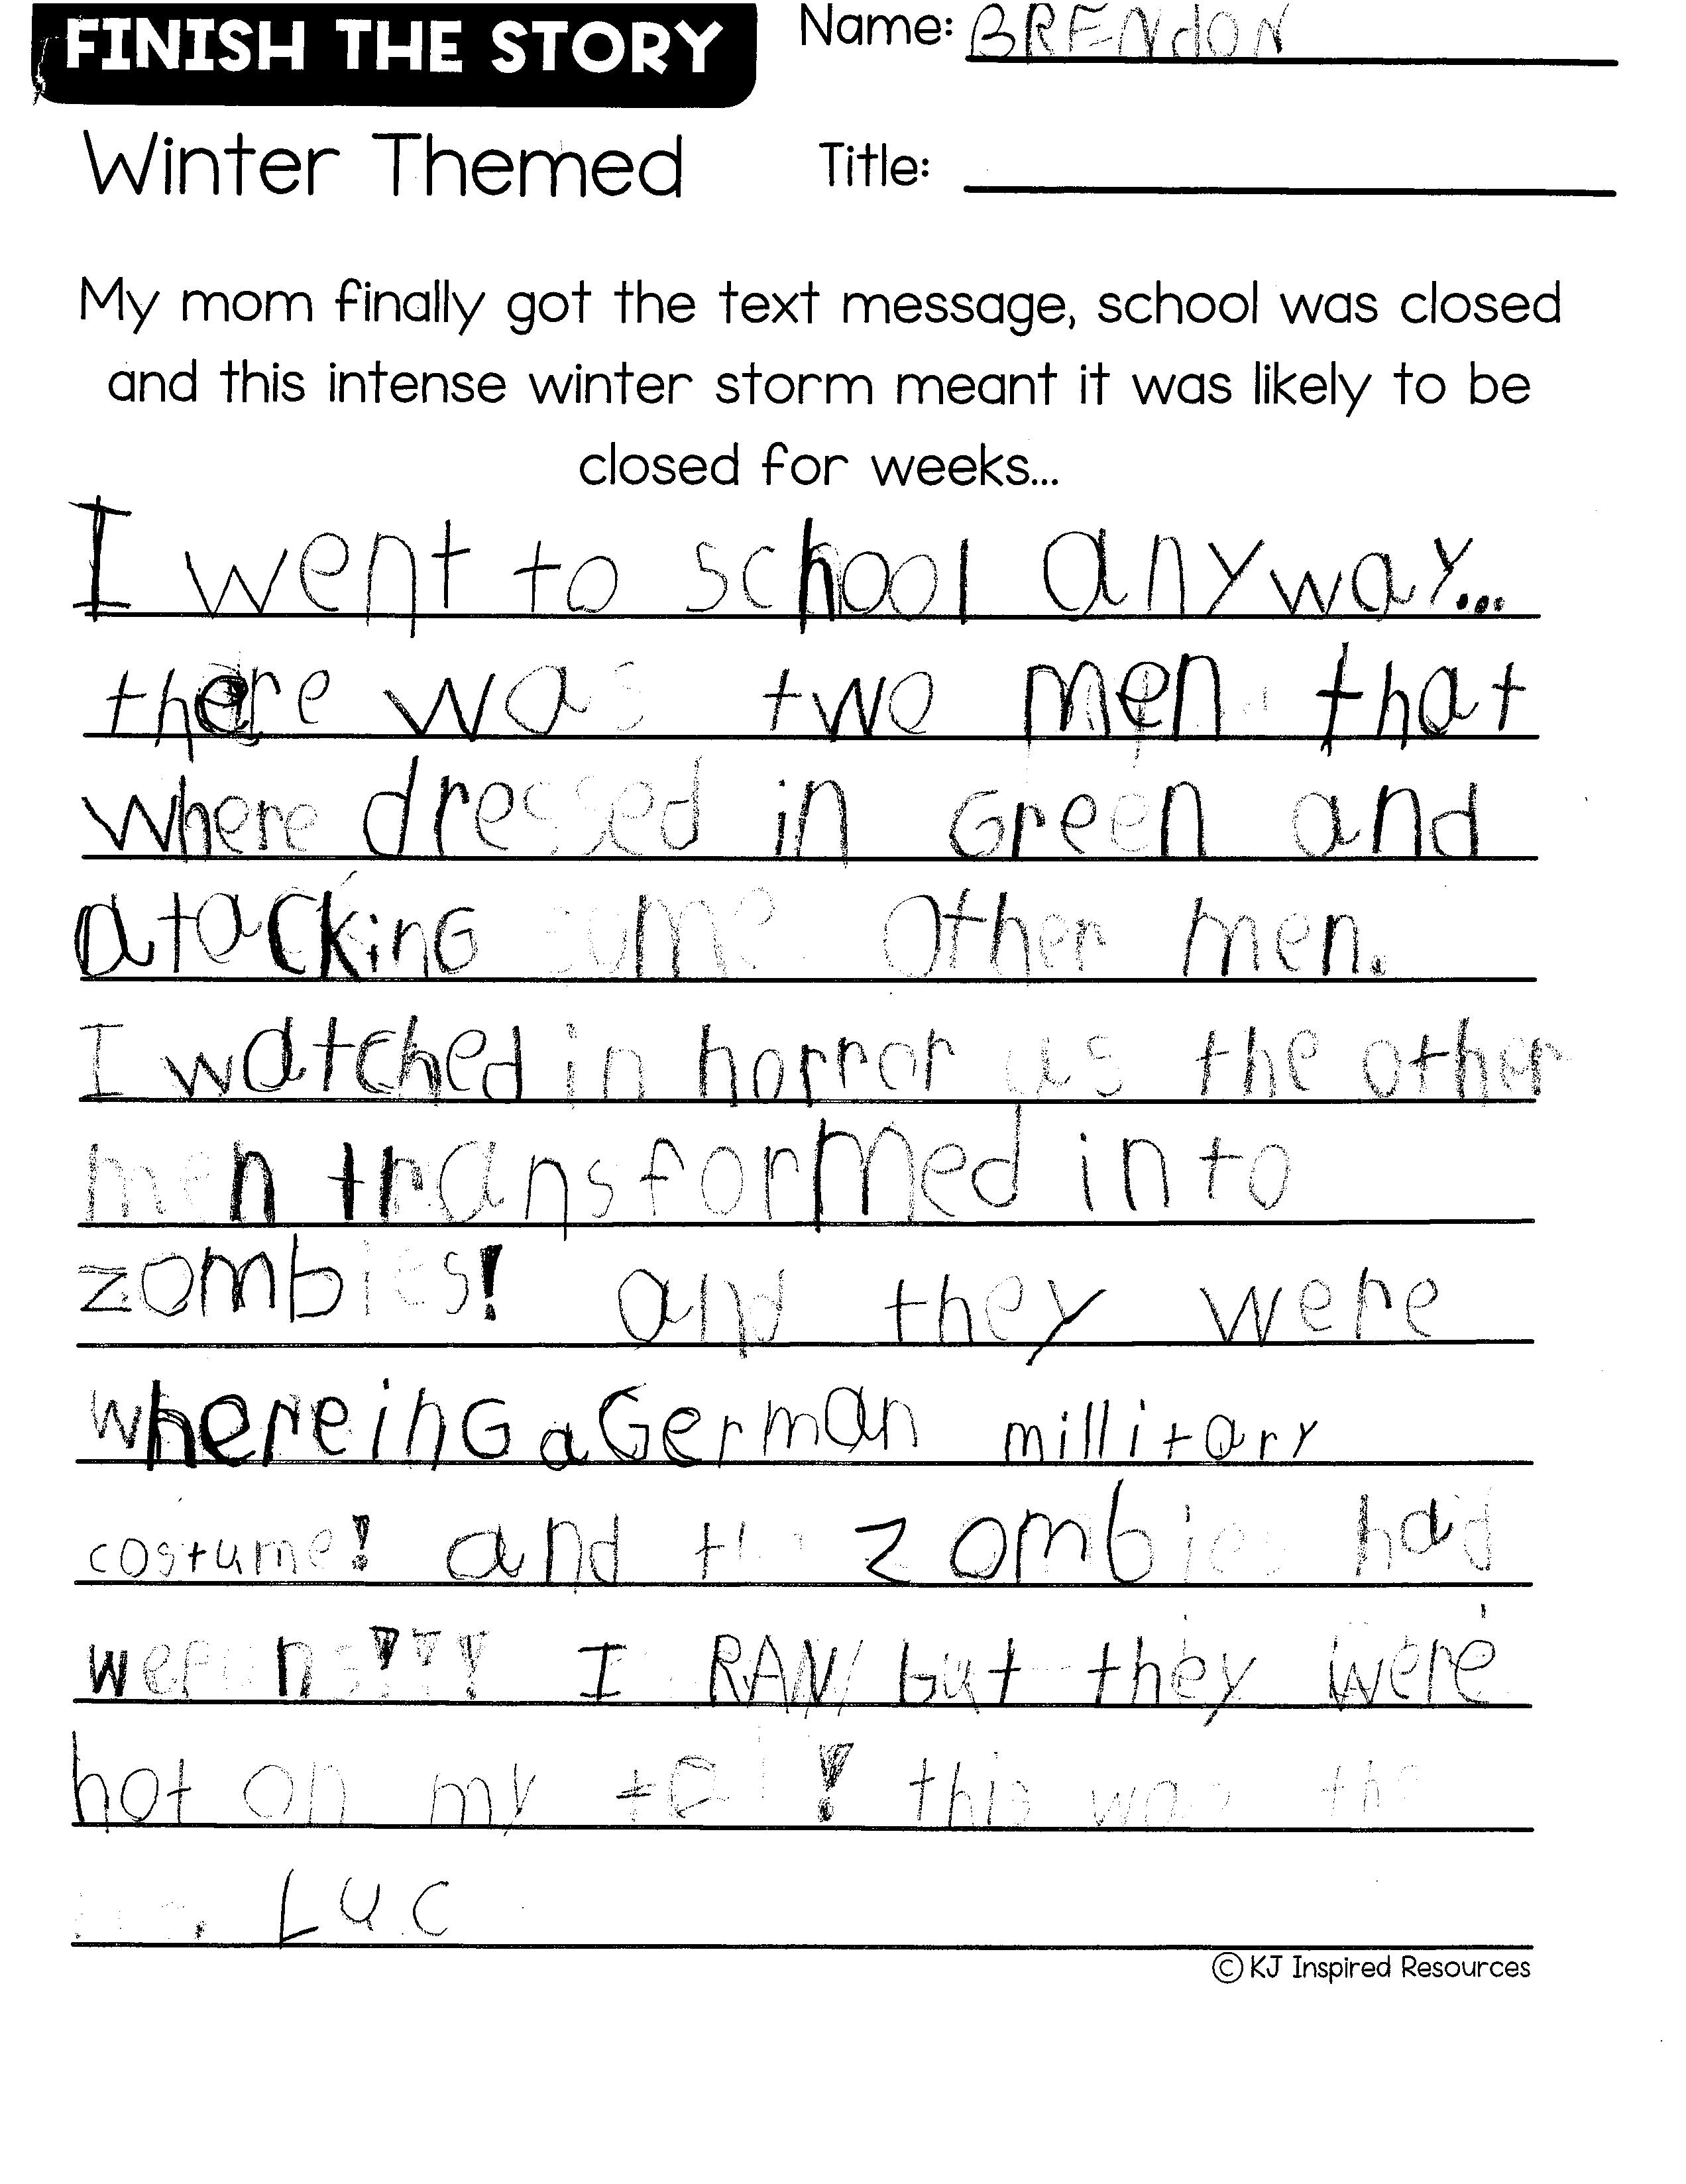 FINISH THE STORY
Name: BRENdON
Winter Themed
Title:
My mom finally got the text message, school was closed
and this intense winter storm meant it was likely to be
closed for weeks...
I went to school anyway...
there was two men that
where dressed in Green and
atackinG some other men.
I watched in horror as the other
men transformed into
zombies! and they were
whereinG a German millitary
costume! and the zombies had
wepons!!! I RAN but they were
hot on my tail! this was the
Luc
© KJ Inspired Resources